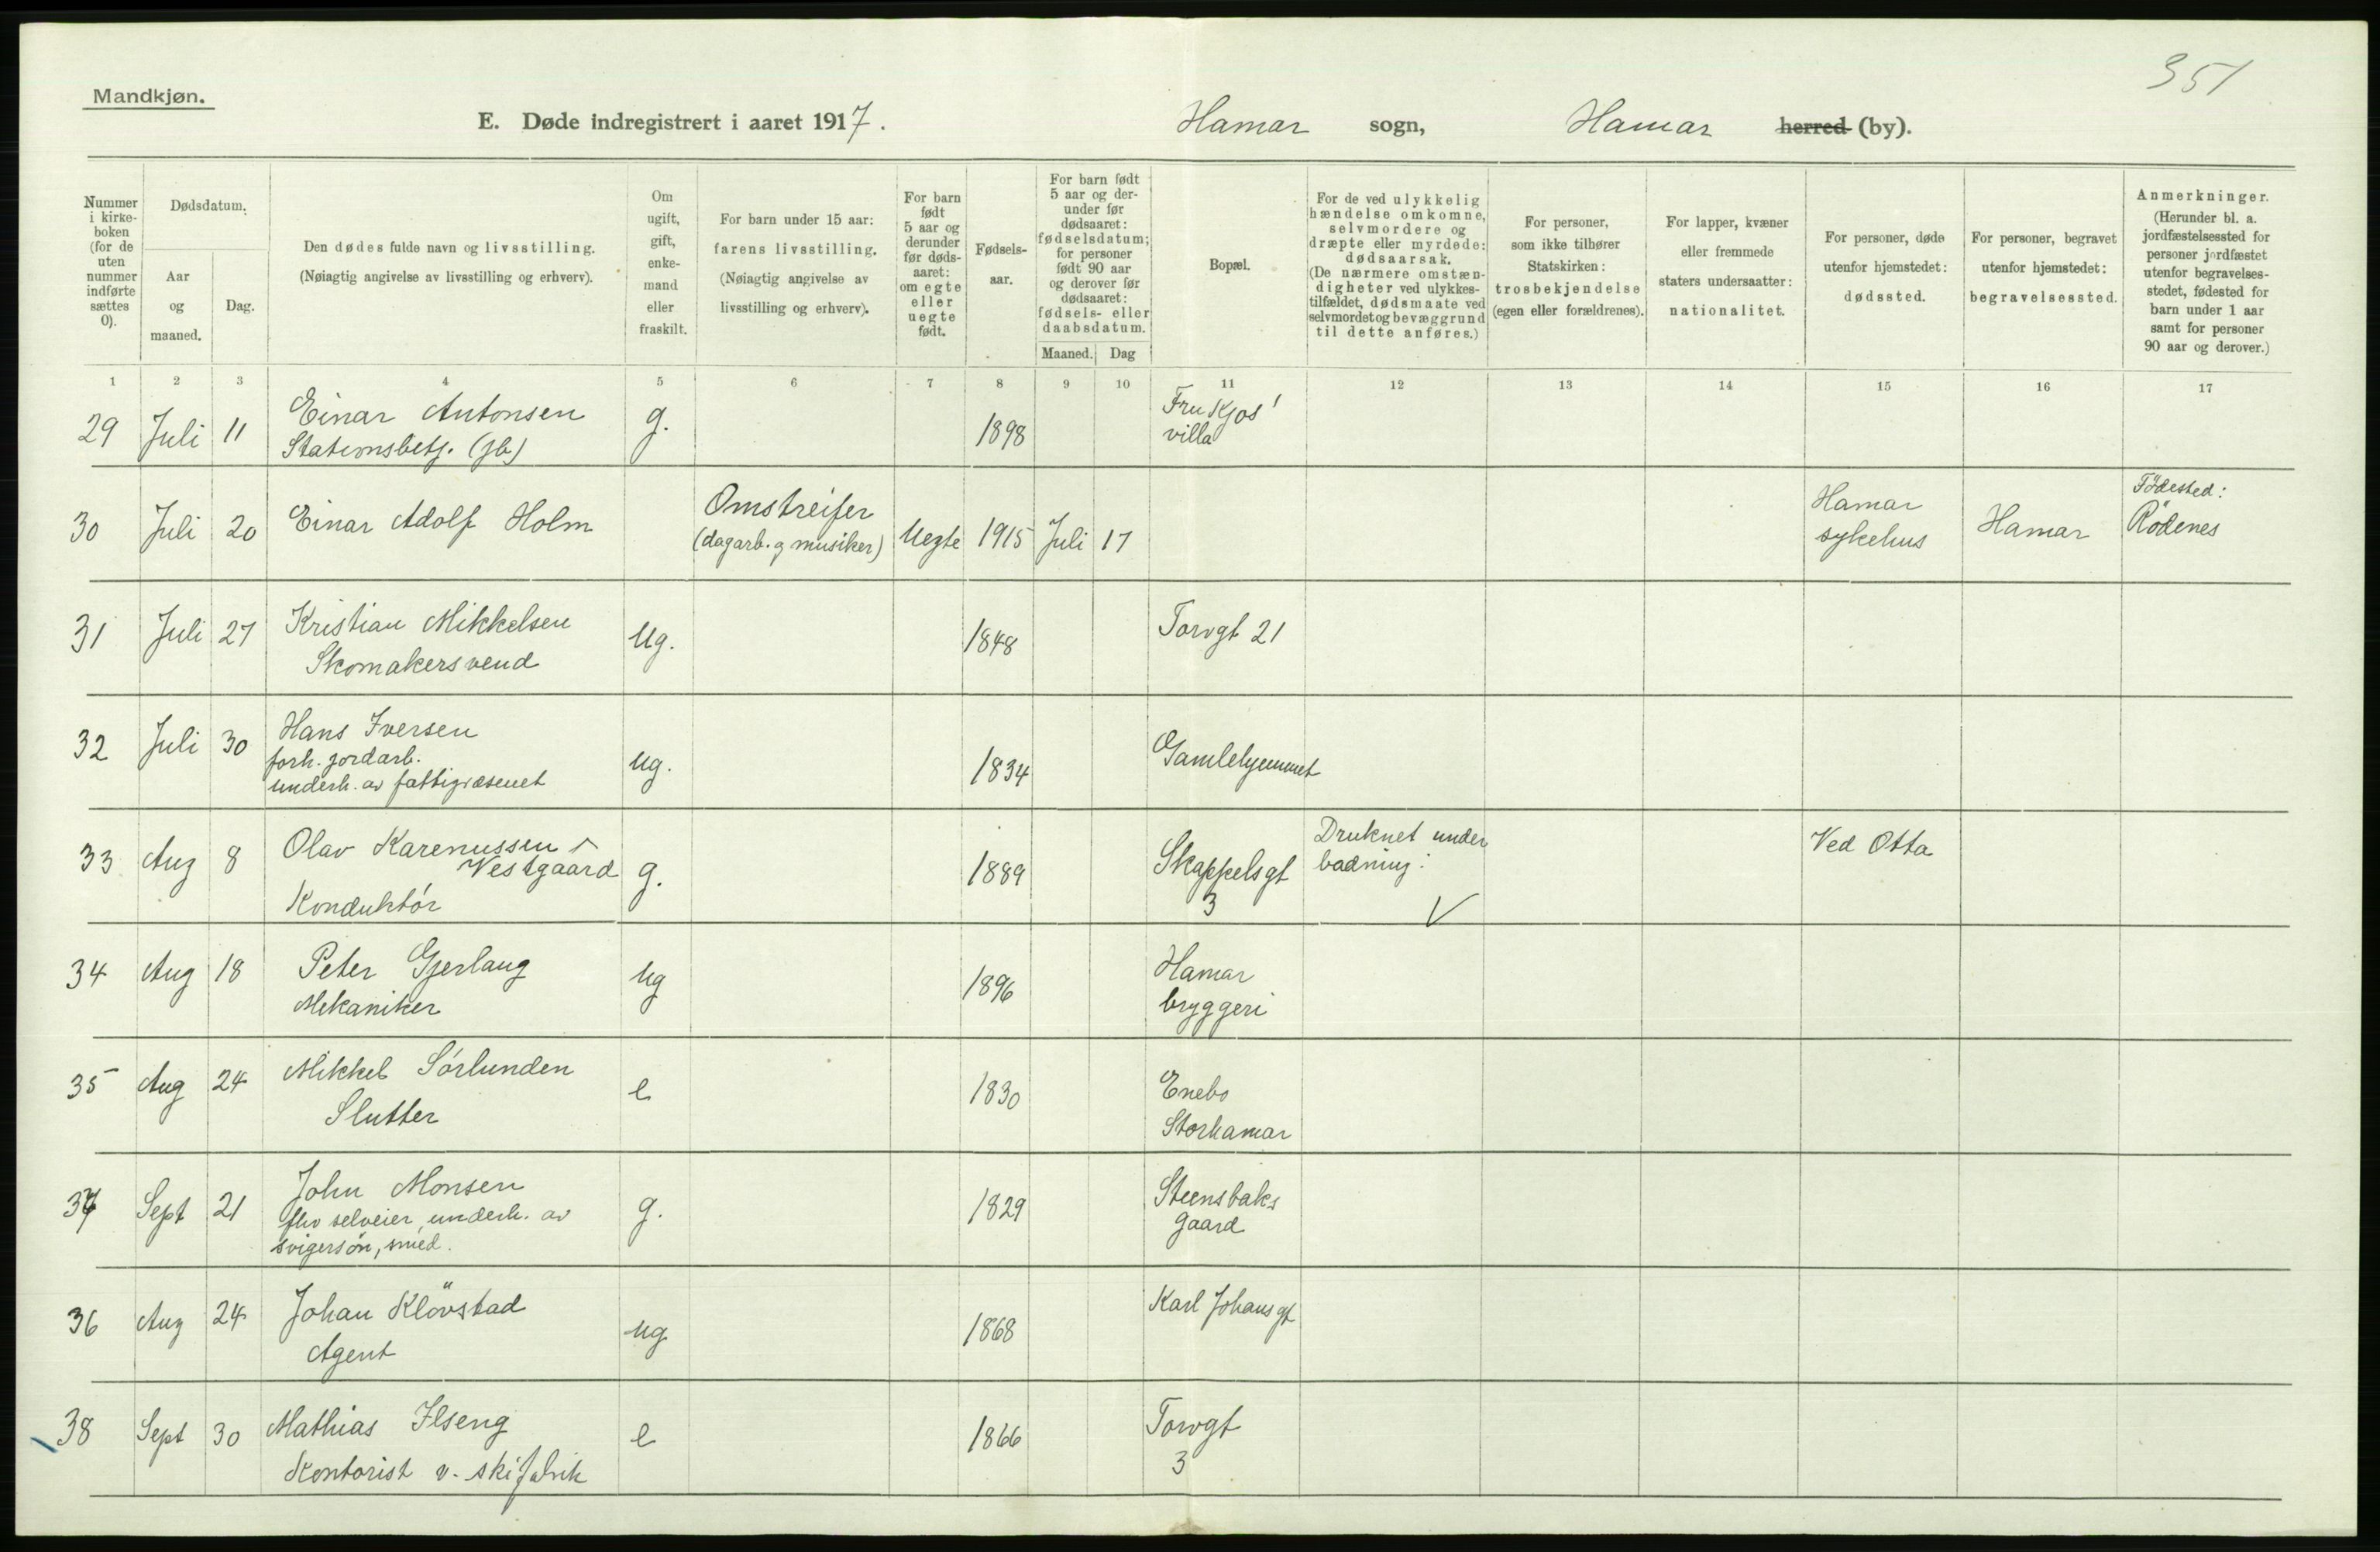 351
Mandkjøn.
E. Døde indregistrert i aaret 1917. Hamar sogn, Hamar herred (by).
Nummer i kirke-boken (for de uten nummer indførte sættes 0).
Dødsdatum.
Aar og maaned.
Dag.
Den dødes fulde navn og livsstilling.
(Nøiagtig angivelse av livsstilling og erhverv).
Om ugift, gift, enke-mand eller fraskilt.
For barn under 15 aar: farens livsstilling.
(Nøiagtig angivelse av livsstilling og erhverv).
For barn født 5 aar og derunder før døds-aaret: om egte eller uegte født.
Fødsels-aar.
For barn født 5 aar og der-under før dødsaaret: fødselsdatum; for personer født 90 aar og derover før dødsaaret: fødsels- eller daabsdatum.
Maaned. Dag
Bopæl.
For de ved ulykkelig hændelse omkomne, selvmordere og dræpte eller myrdede: dødsaarsak. (De nærmere omstæn-digheter ved ulykkes-tilfældet, dødsmaate ved selvmordet og bevæggrund til dette anføres.)
For personer, som ikke tilhører Statskirken: trosbekjendelse (egen eller forældrenes).
For lapper, kvæner eller fremmede staters undersaatter: nationalitet.
For personer, døde utenfor hjemstedet: dødssted.
For personer, begravet utenfor hjemstedet: begravelsessted.
Anmerkninger. (Herunder bl. a. jordfæstelsessted for personer jordfæstet utenfor begravelses-stedet, fødested for barn under 1 aar samt for personer 90 aar og derover.)
1 2 3 4 5 6 7 8 9 10 11 12 13 14 15 16 17
29 Juli 11 Einar Antonsen g. 1898 Fru Kjos'
Stationsbetj. (jb) villa
30 Juli 20 Einar Adolf Holm Omstreifer Uegte 1915 Juli 17 Hamar Hamar Fødested:
(dagarb. og musiker) sykehus Rödenes
31 Juli 27 Kristian Mikkelsen Ug. 1848 Torvgt 21
Skomakersvend
32 Juli 30 Hans Iversen ug. 1834 Gamlehjemmet
forh. jordarb.
underh. av fattigvæsenet
33 Aug 8 Olav Karenussen g. 1889 Skappelsgt Druknet under Ved Otta
Vestgaard 3 badning:
Konduktór V
34 Aug 18 Peter Gjerlaug Ug 1896 Hamar
Mekaniker bryggeri
35 Aug 24 Mikkel Sórlunden e 1830 Enebo
Slutter Storhamar
37 Sept 21 John Monsen g. 1829 Steensbaks
fhv selveier, underh. av gaard
svigersøn, smed.
36 Aug 24 Johan Klövstad ug 1868 Karl Johansgt
Agent
38 Sept 30 Mathias Ilseng e 1866 Torvgt
Kontorist v. skifabrik 3